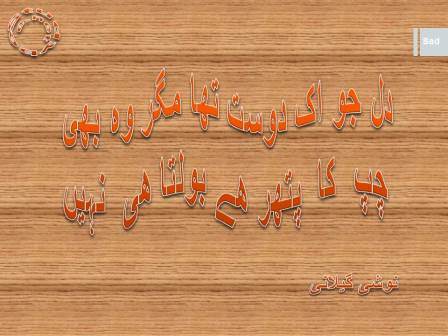 Sad
دل جو اک دوست تھا مگر وہ بھی
چپ کا پتھر ھے بولتا ھی نہیں
نوشی گیلانی